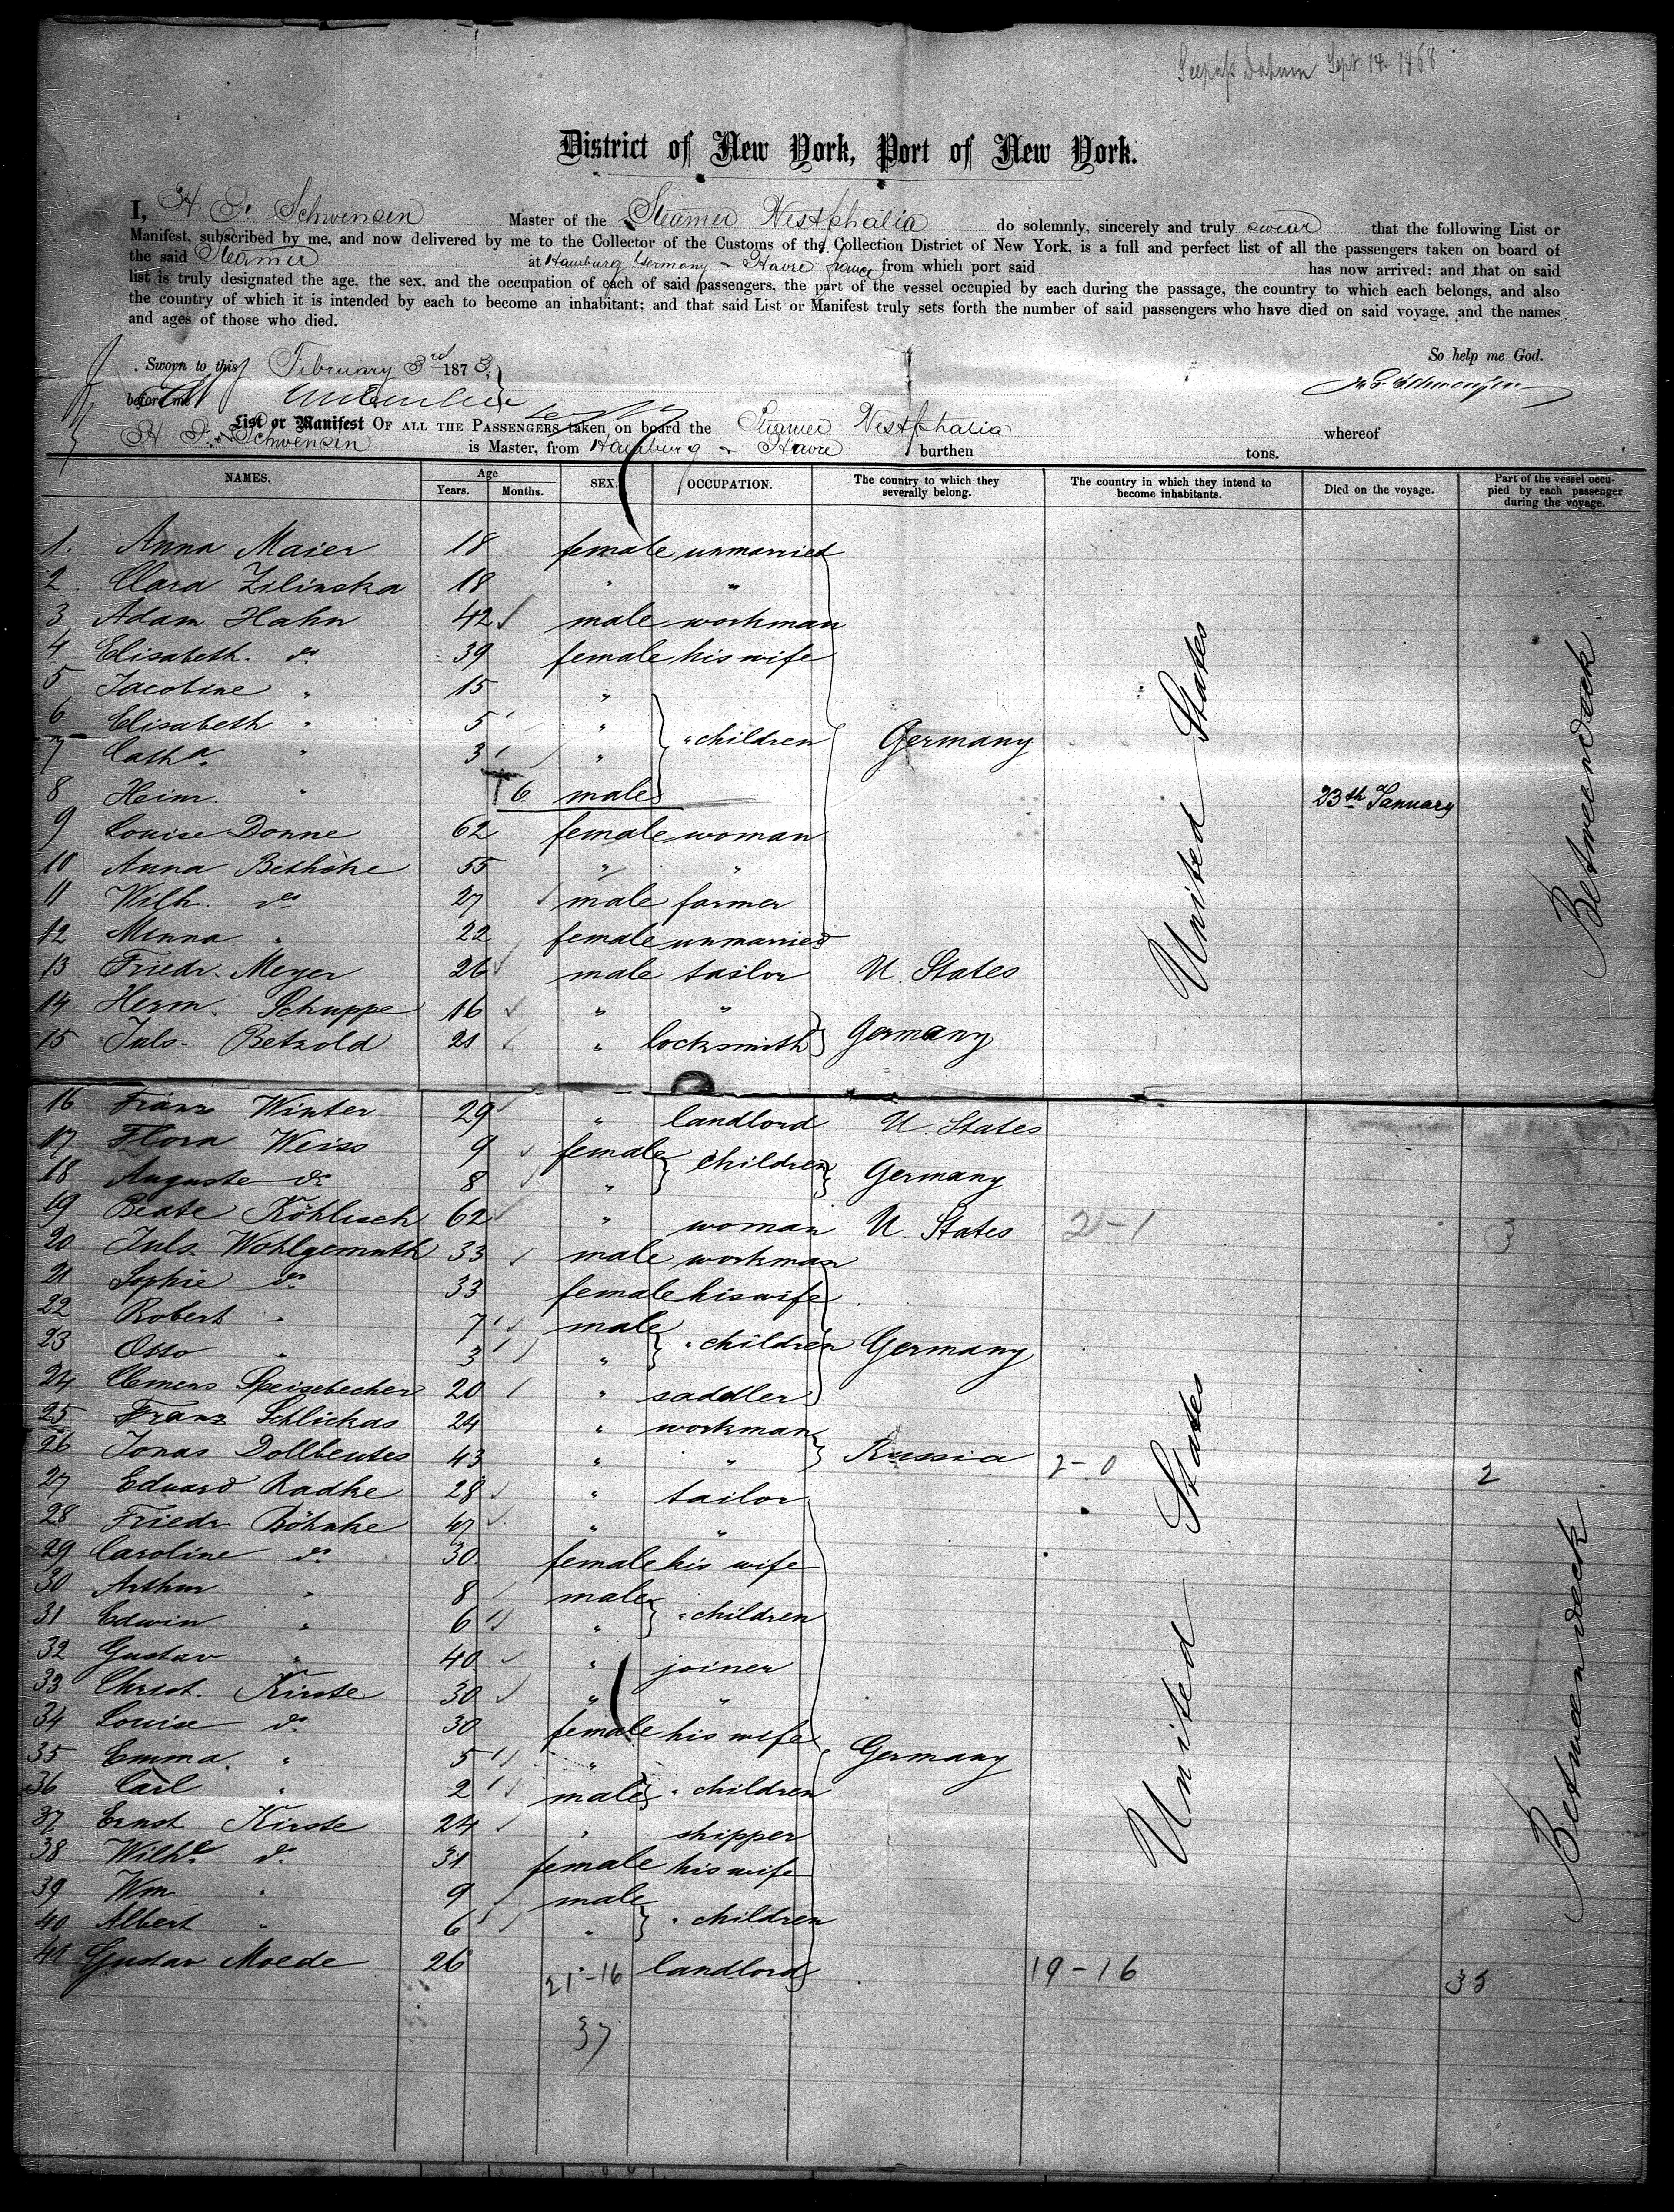 Seepass Datum Sept 14. 1868
District of New York, Port of New York.
I, H. F. Schwensen Master of the Steamer Westphalia do solemnly, sincerely and truly swear that the following List or
Manifest, subscribed by me, and now delivered by me to the Collector of the Customs of the Collection District of New York, is a full and perfect list of all the passengers taken on board of
the said Steamer at Hamburg Germany & Havre france from which port said has now arrived; and that on said
list is truly designated the age, the sex, and the occupation of each of said passengers, the part of the vessel occupied by each during the passage, the country to which each belongs, and also
the country of which it is intended by each to become an inhabitant; and that said List or Manifest truly sets forth the number of said passengers who have died on said voyage, and the names
and ages of those who died.
So help me God.
Sworn to this February 3rd 1873.
before me
List or Manifest OF ALL THE PASSENGERS taken on board the Steamer Westphalia whereof
H. F. Schwensen is Master, from Hamburg & Havre burthen tons.
NAMES. Age Years. Months. SEX. OCCUPATION. The country to which they severally belong. The country in which they intend to become inhabitants. Died on the voyage. Part of the vessel occupied by each passenger during the voyage.
1. Anna Maier 18 female unmarried
2. Clara Zilinska 18 " "
3 Adam Hahn 42 male workman
4 Elisabeth do 39 female his wife
5 Jacobine " 15 "
6 Elisabeth " 5 "
7 Cathe. " 3 " " children Germany
8 Heinr. " 6 male 23th January
9 Louise Donne 62 female woman
10 Anna Bethöke 55 " "
11 Wilh. do 27 male farmer
12 Minna " 22 female unmarried
13 Friedr. Meyer 26 male tailor U. States
14 Herm. Schuppe 16 " "
15 Juls. Betzold 21 " locksmith Germany
United States
Betweendeck
16 Franz Winter 29 " landlord U. States
17 Flora Weiss 9 female children
18 Auguste do 8 " Germany
19 Beate Köhlisch 62 " woman U. States 2-1 3
20 Juls. Wohlgemuth 33 male workman
21 Sophie do 33 female his wife
22 Robert " 7 male
23 Otto " 3 " " children Germany
24 Clemens Speisebecher 20 " saddler
25 Franz Schlickas 24 " workman
26 Jonas Dollbeutes 43 " " Russia 2-0 2
27 Eduard Radke 28 " tailor
28 Friedr Böhnke 47 " "
29 Caroline do 30 female his wife
30 Arthur " 8 male
31 Edwin " 6 " " children
32 Gustav " 40 " joiner
33 Christ. Kirste 30 " "
34 Louise do 30 female his wife
35 Emma " 5 " Germany
36 Carl " 2 male " children
37 Ernst Kirste 24 " shipper
38 Wilhe do 31 female his wife
39 Wm " 9 male
40 Albert " 6 " " children
41 Gustav Moede 26 landlord
21-16 19-16 35
37
United States
Betweendeck